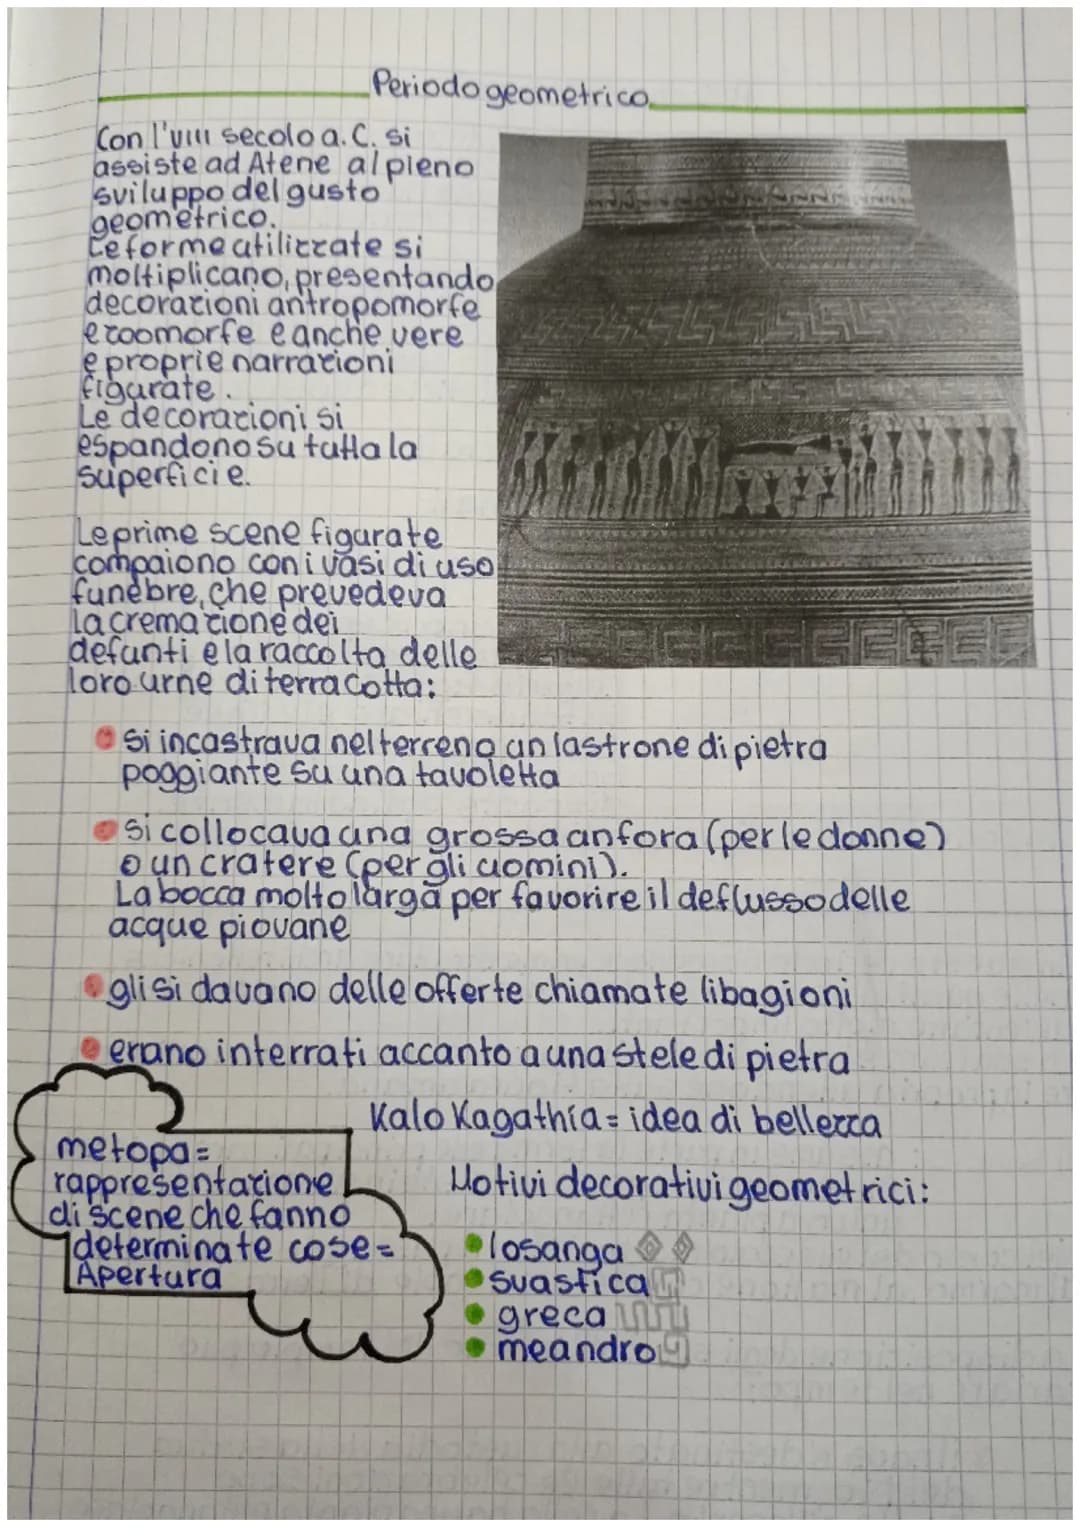 Periodo geometrico
Con l'VIII secolo a.C. si
assiste ad Atene al pieno
sviluppo del gusto
geometrico.
Le forme utilizzate si
moltiplicano, presentando
decorazioni antropomorfe
e zoomorfe e anche vere
e proprie narrazioni
figurate.
Le decorazioni si
espandono su tutta la
superficie.
Le prime scene figurate
compaiono con i vasi di uso
funebre, che prevedeva
la cremazione dei
defunti e la raccolta delle
loro urne di terracotta:
si incastrava nel terreno un lastrone di pietra
poggiante su una tavoletta
si collocava una grossa anfora (per le donne)
o un cratere (per gli uomini).
La bocca molto larga per favorire il deflusso delle
acque piovane
gli si davano delle offerte chiamate libagioni
erano interrati accanto a una stele di pietra
Kalo Kagathia = idea di bellezza
metopa=
rappresentazione
di scene che fanno
determinate cose=
Apertura
Motivi decorativi geometrici:
losanga
suastica
greca
meandro